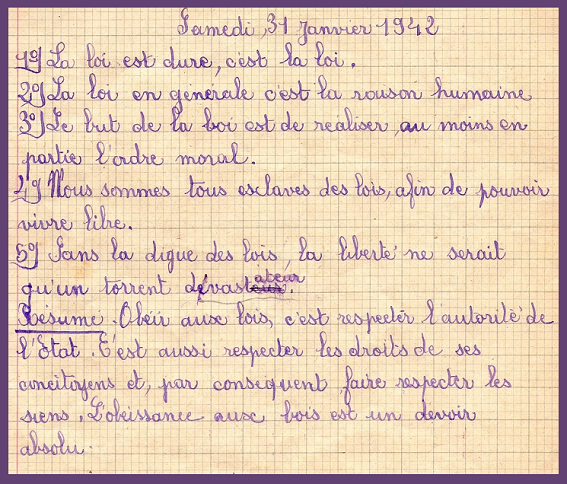 Samedi, 31 Janvier 1942
1º) La loi est dure, c'est la loi.
2º) La loi en générale c'est la raison humaine
3º) Le but de la loi est de réaliser, au moins en
partie l'ordre moral.
4º) Nous sommes tous esclaves des lois, afin de pouvoir
vivre libre.
5º) Sans la digue des lois, la liberté ne serait
qu'un torrent dévastateur.
Résumé. Obéir aux lois, c'est respecter l'autorité de
l'Etat. C'est aussi respecter les droits de ses
concitoyens et, par conséquent faire respecter les
siens. L'obéissance aux lois est un devoir
absolu.